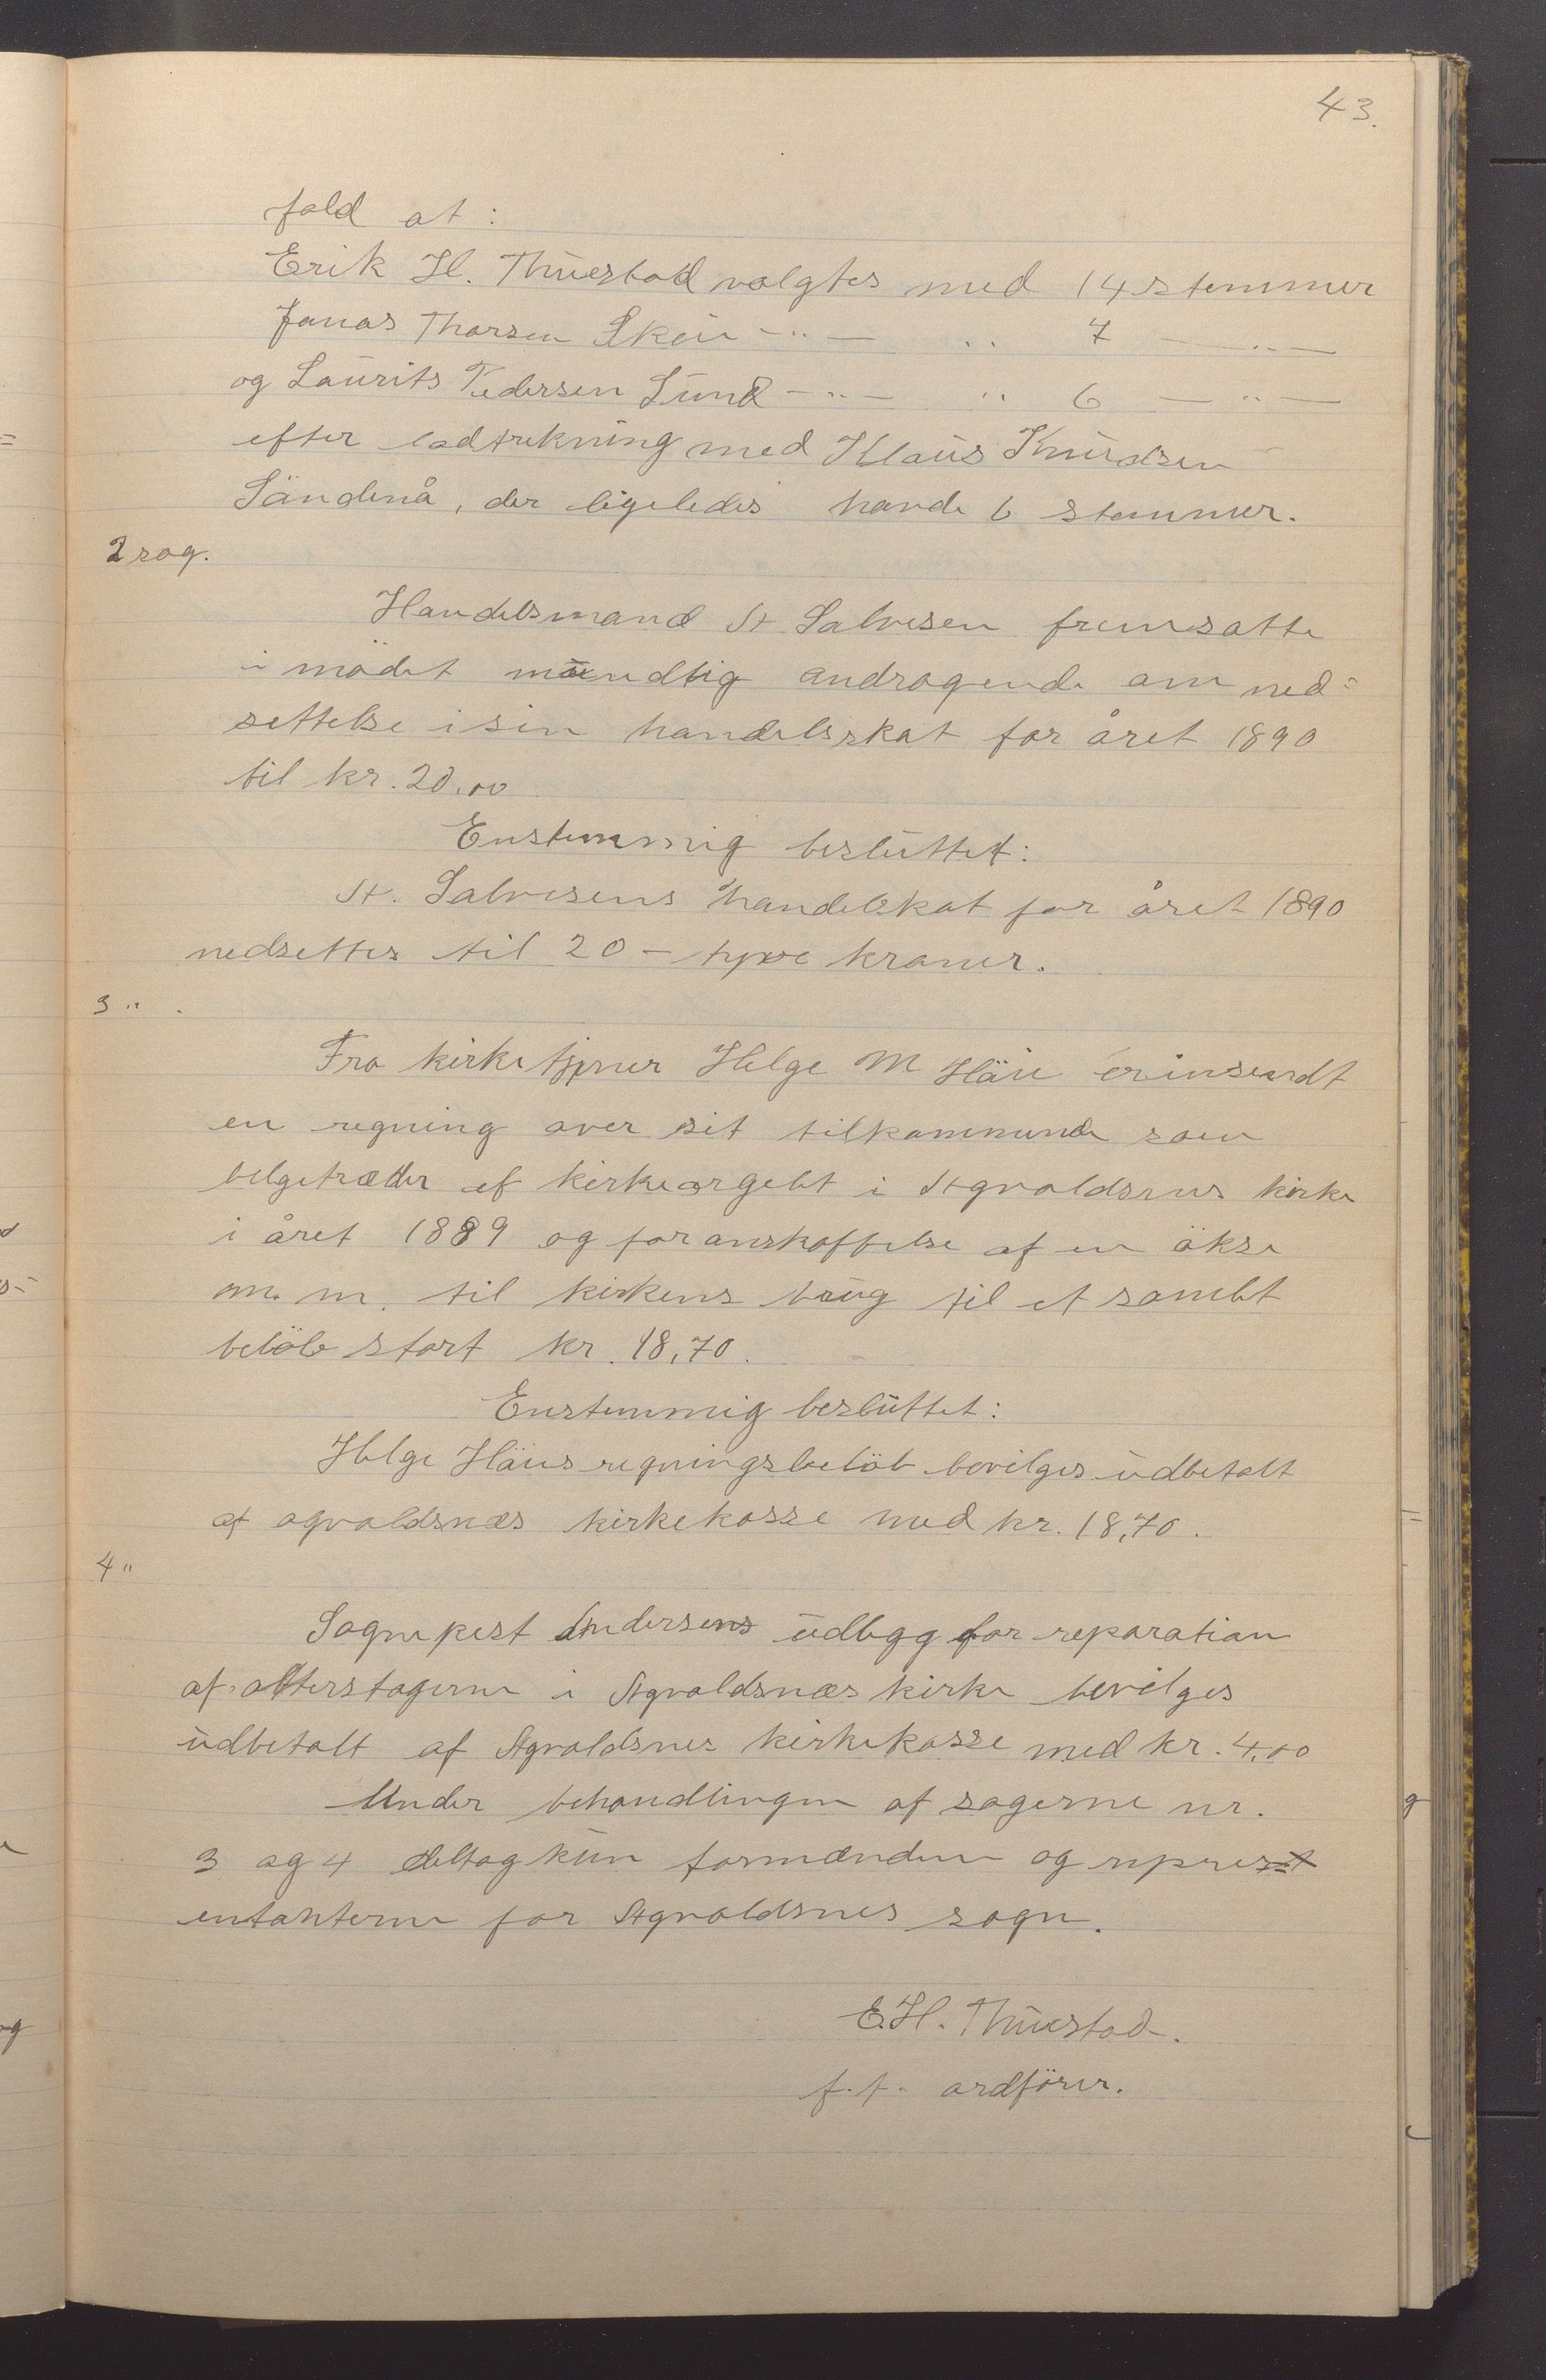 43.
fald at:
Erik H. Thuestad valgtes med 14 stemmer
Jonas Thorsen Skeie -"- " 7 -"-
og Laurits Pedersen Lund -"- " 6 -"-
efter lodtrekning med Klaus Knudsen
Sändenå, der ligeledes havde 6 stemmer.
2 sag.
Handelsmand A. Salvesen fremsatte
i mödet mundtlig andragende om ned=
settelse i sin handelsskat for året 1890
til kr. 20.00
Enstemmig besluttet:
A. Salvesens handelskat for året 1890
nedsettes til 20 – tyve kroner.
3 " .
Fra kirketjener Helge M Häu er insendt
en regning over sit tilkommende som
belgetræder af kirkeorgelet i Agvaldsnes kirke
i året 1889 og for anskaffelse af en ökse
m. m. til kirkens brug til et samlet
belöb stort kr. 18,70.
Enstemmig besluttet:
Helge Häus regningsbelöb bevilges udbetalt
af agvaldsnæs kirkekasse med kr. 18,70.
4 "
Sognepest Andersens udlegg for reparation
af alterstagerne i Agvaldsnæs kirke bevilges
udbetalt af Agvaldsnes kirkekasse med kr. 4.00
Under behandlingen af sagerne nr.
3 og 4 deltog kun formændene og repres=
entanterne for Agvaldsnes sogn.
E. H. Thuestad.
f. f. ordförer.